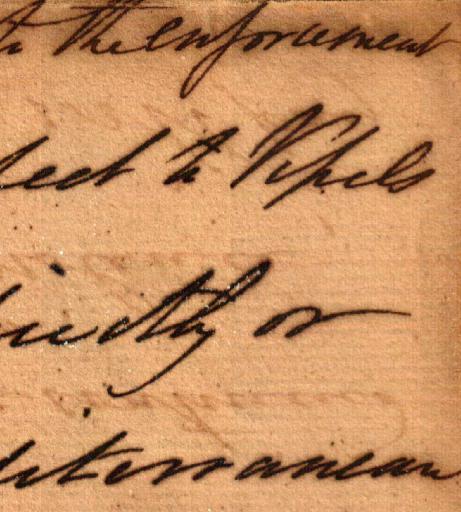 to the enforcement
pect to Vessels
directly or
diterranean